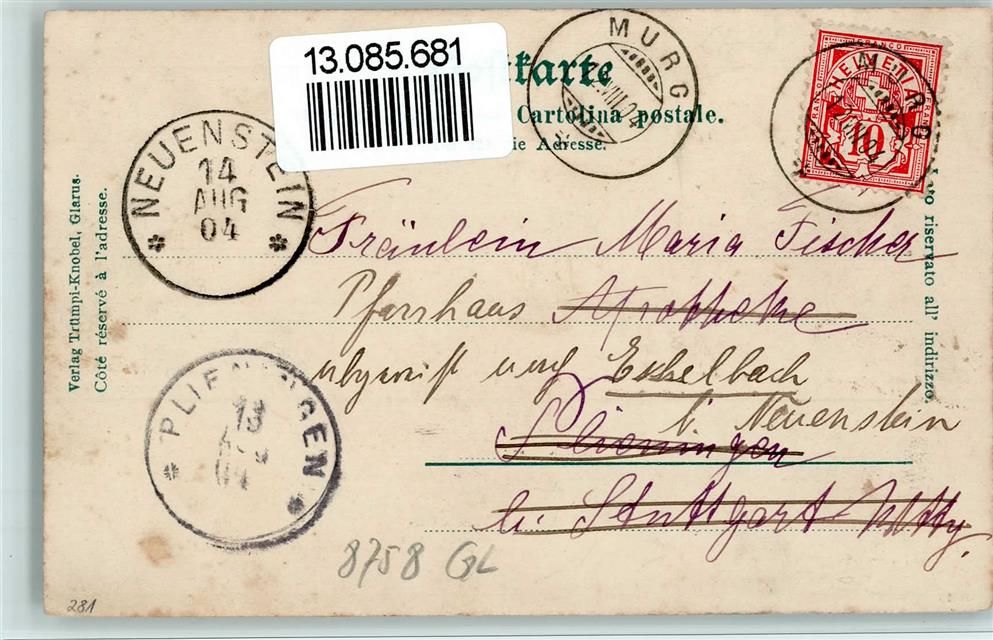 13.085.681
MURG
VIII.04
tkarte
Cartolina postale.
ie Adresse.
FRANCO
HELVETIA
10
NEUENSTEIN
14
AUG
04
Verlag Trümpi-Knobel, Glarus.
Côté réservé à l'adresse.
Lato riservato all' indirizzo.
Fräulein Maria Fischer
Pfarrhaus Apotheke
abgereist nach Eschelbach
b. Neuenstein
Plieningen
bei Stuttgart Wttbg.
PLIENINGEN
13
AUG
04
8758 GL
281